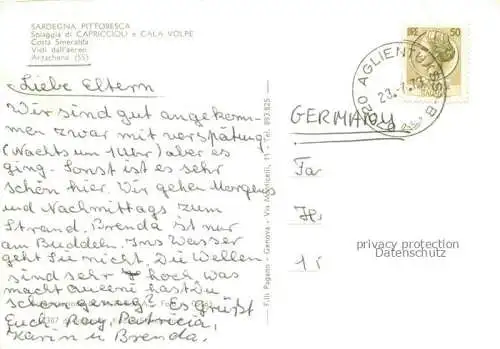 SARDEGNA PITTORESCA
Spiaggia di CAPRICCIOLI e CALA VOLPE
Costa Smeralda
Visti dall'aereo
Arzachena (SS)
Liebe Eltern
Wir sind gut angekom-
men zwar mit verspätung
(Nachts um 1 Uhr) aber es
ging. Sonst ist es sehr
schön hier. Wir gehen Morgens
und Nachmittags zum
Strand. Brenda ist nur
am Buddeln. Ins Wasser
geht Sie nicht. Die Wellen
sind sehr hoch was
macht hast Du
schon genug? Es Grüßt
Euch Ray, Patricia,
Karin u Brenda.
F.lli Pagano - Genova - Via Monticelli, 11 - Tel. 893.825
LIRE 50
AGLIENTU
GERMANY
Fa
H
privacy protection
Datenschutz